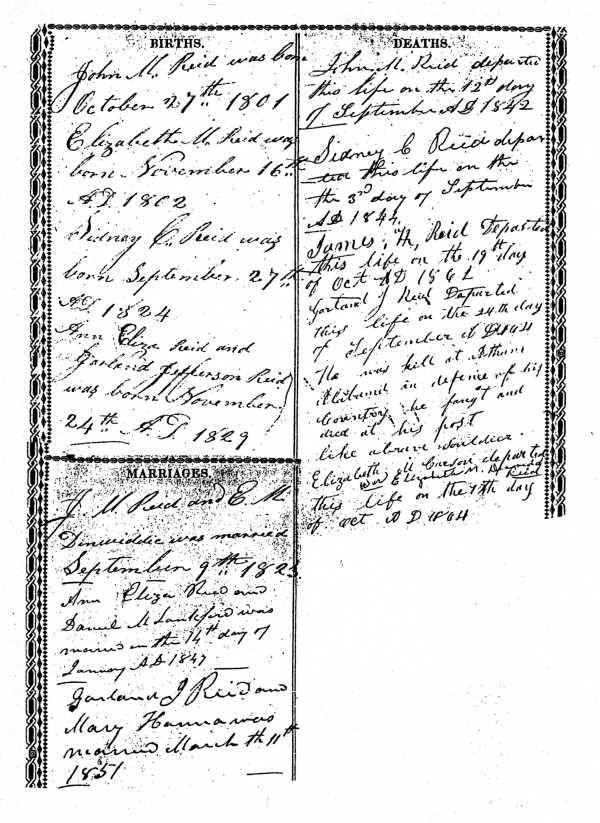 BIRTHS.
John M. Reid was born
October 27th 1801
Elizabeth M. Reid was
born November 16th
AD. 1802
Sidney C. Reid was
born September 27th
AD. 1824
Ann Eliza Reid and
Garland Jefferson Reid
was born November
24th A.D. 1829
MARRIAGES.
J. M Reid and E. M.
Dinwiddie was married
September 9th 1823
Ann Eliza Reid and
Daniel M Lankford was
married on the 14th day of
January AD 1847
Garland J Reid and
Mary Hanna was
married March th 11th
1851
DEATHS.
John M. Reid departed
this life on the 12th day
of September AD 1842
Sidney C Reid depar
ted this life on the
the 3rd day of September
AD 1844.
James, H, Reid Departed
this life on the 19th day
of Oct AD 1862
Garland J Reid Departed
this life on the 24th day
of September A D 1864
He was kill at Athens
Alibama in defence of his
Country he faught and
died at his post
like a brave souldier
Elizabeth M Carson departed
Elizabeth M. Reid
this life on the 17th day
of Oct A D. 1864